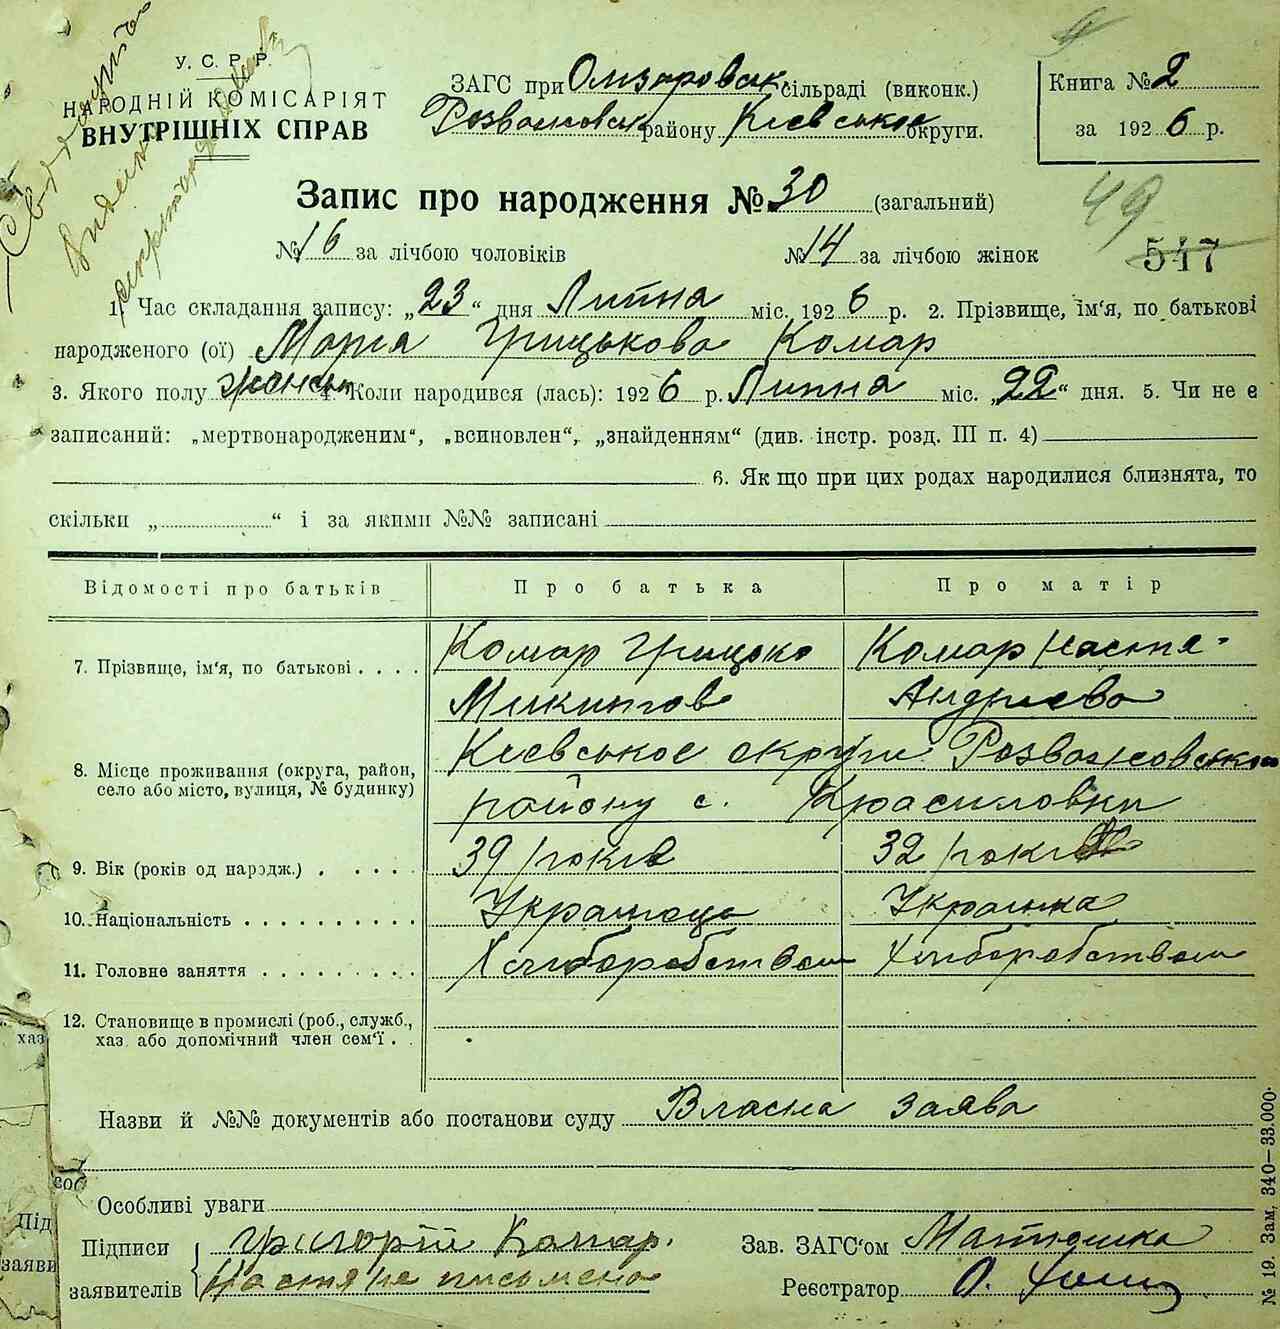 У. С. Р. Р.
НАРОДНІЙ КОМІСАРІЯТ
ВНУТРІШНІХ СПРАВ
ЗАГС при сільраді (виконк.)
району Кієвськоє округи.
Книга № 2
за 1926 р.
Запис про народження № 30 (загальний)
49
№ 16 за лічбою чоловіків № 14 за лічбою жінок 547
1. Час складання запису: „23“ дня Липня міс. 1926 р. 2. Прізвище, ім‘я, по батькові
народженого (ої) Марія Грицькова Комар
3. Якого полу жоноч 4. Коли народився (лась): 1926 р. Липня міс. „22“ дня. 5. Чи не є
записаний: „мертвонародженим“, „всиновлен“, „знайденням“ (див. інстр. розд. III п. 4)
6. Як що при цих родах народилися близнята, то
скільки „ “ і за якими №№ записані
Відомості про батьків Про батька Про матір
7. Прізвище, ім‘я, по батькові . . . . Комар Грицько Комар Настя
Микитов Андрієва
8. Місце проживання (округа, район, село або місто, вулиця, № будинку) Кієвськоє округи Розважовського
району с. Красиловки
9. Вік (років од народж.) . . . . . 39 років 32 років
10. Національність . . . . . . . . . . Українець Українка
11. Головне заняття . . . . . . . . . Хліборобством Хліборобством
12. Становище в промислі (роб., служб.,
хаз. або допомічний член сем‘ї . .
Назви й №№ документів або постанови суду Власна заява
Особливі уваги
Підписи заявителів Григорій Комар.
Настя не письмена
Зав. ЗАГС‘ом Матюшка
Реєстратор О.
№ 19. Зам. 340—33.000.
хаз
соб
Під
заяви